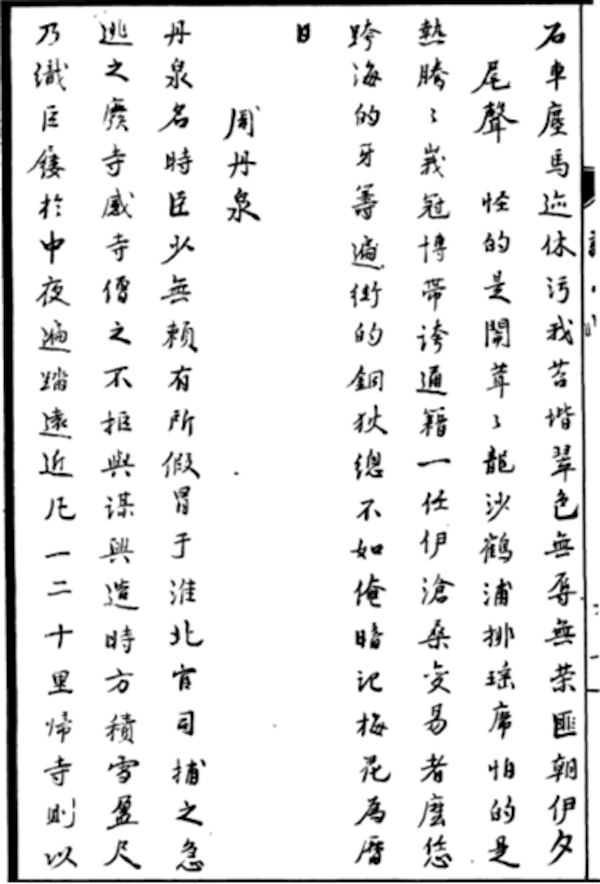 石車塵馬迹休污我苔堦翠色無辱無榮匪朝伊夕
尾聲 怪的是開茸〻龍沙鶴浦排瑶席怕的是
熱騰〻峩冠博帶誇通籍一任伊滄桑変易者麽恁
跨海的牙籌遍街的銅狄總不如俺暗记梅花為曆
日
周丹泉
丹泉名時臣少無頼有所假冒于淮北官司捕之急
逃之廢寺感寺僧之不拒與謀興造時方積雪盈尺
乃織巨鞋於中夜遍踏遠近凡一二十里歸寺則以